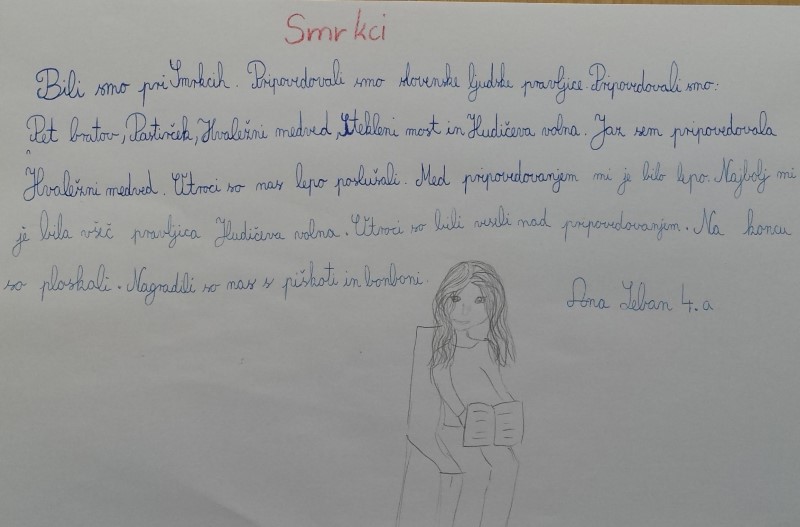 Smrkci
Bili smo pri Smrkcih. Pripovedovali smo slovenske ljudske pravljice. Pripovedovali smo:
Pet bratov, Pastirček, Hvaležni medved, Stekleni most in Hudičeva volna. Jaz sem pripovedovala
Hvaležni medved. Otroci so nas lepo poslušali. Med pripovedovanjem mi je bilo lepo. Najbolj mi
je bila všič pravljica Hudičeva volna. Otroci so bili veseli nad pripovedovanjem. Na koncu
so ploskali. Nagradili so nas s piškoti in bonboni.
Ana Leban 4. a